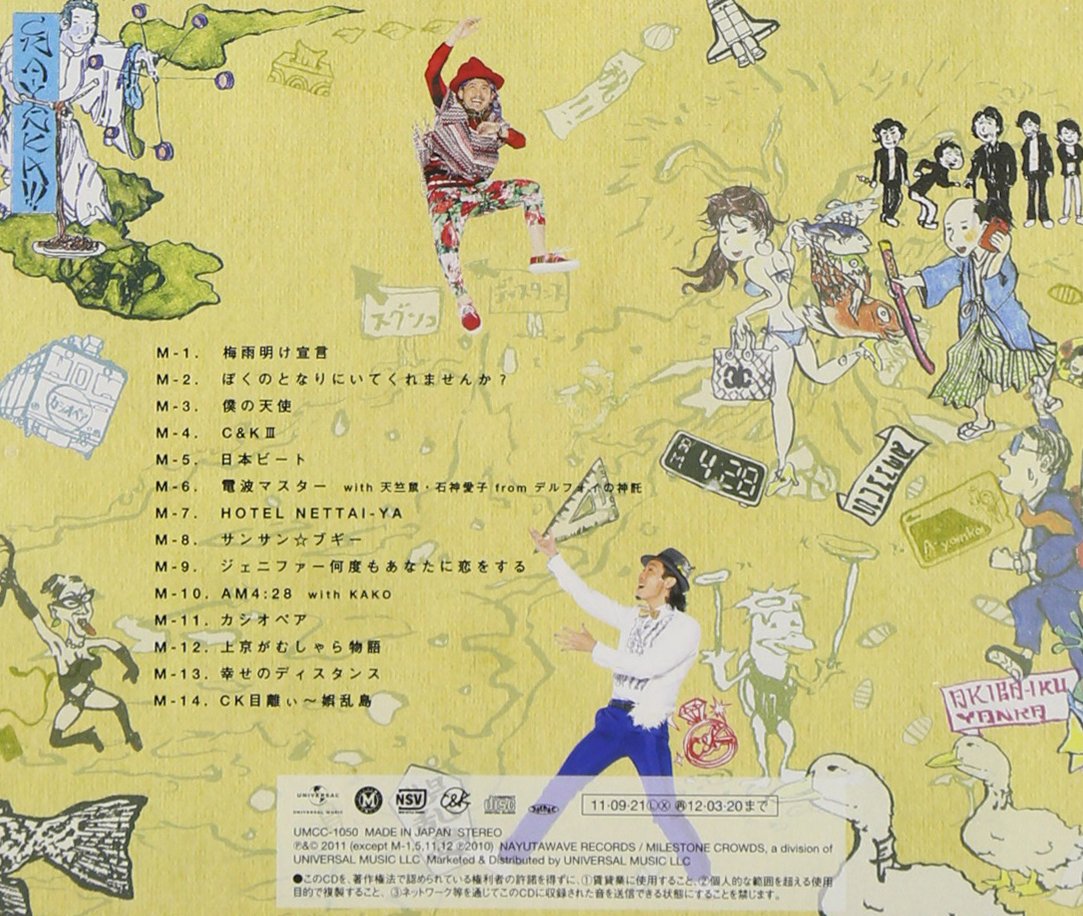 CRAYANKA!!
祝
スグンコ
ディスタンス
カシオペア
M-1. 梅雨明け宣言
M-2. ぼくのとなりにいてくれませんか？
M-3. 僕の天使
M-4. C&KⅢ
M-5. 日本ビート
M-6. 電波マスター with 天竺鼠・石神愛子 from デルフォイの神託
M-7. HOTEL NETTAI-YA
M-8. サンサン☆ブギー
M-9. ジェニファー何度もあなたに恋をする
M-10. AM4:28 with KAKO
M-11. カシオペア
M-12. 上京がむしゃら物語
M-13. 幸せのディスタンス
M-14. CK目離ぃ～娼乱島
AM 4:28
A-yanka
C&K
AKIBA-IKU
YANKA
UNIVERSAL
UNIVERSAL MUSIC
M
NSV
C&K
disc
11・09・21ⓁⓍ㋐12・03・20まで
UMCC-1050 MADE IN JAPAN STEREO
℗&© 2011 (except M-1,5,11,12 ℗2010) NAYUTAWAVE RECORDS / MILESTONE CROWDS, a division of
UNIVERSAL MUSIC LLC Marketed & Distributed by UNIVERSAL MUSIC LLC
●このCDを、著作権法で認められている権利者の許諾を得ずに、①賃貸業に使用すること、②個人的な範囲を超える使用
目的で複製すること、③ネットワーク等を通じてこのCDに収録された音を送信できる状態にすることを禁じます。